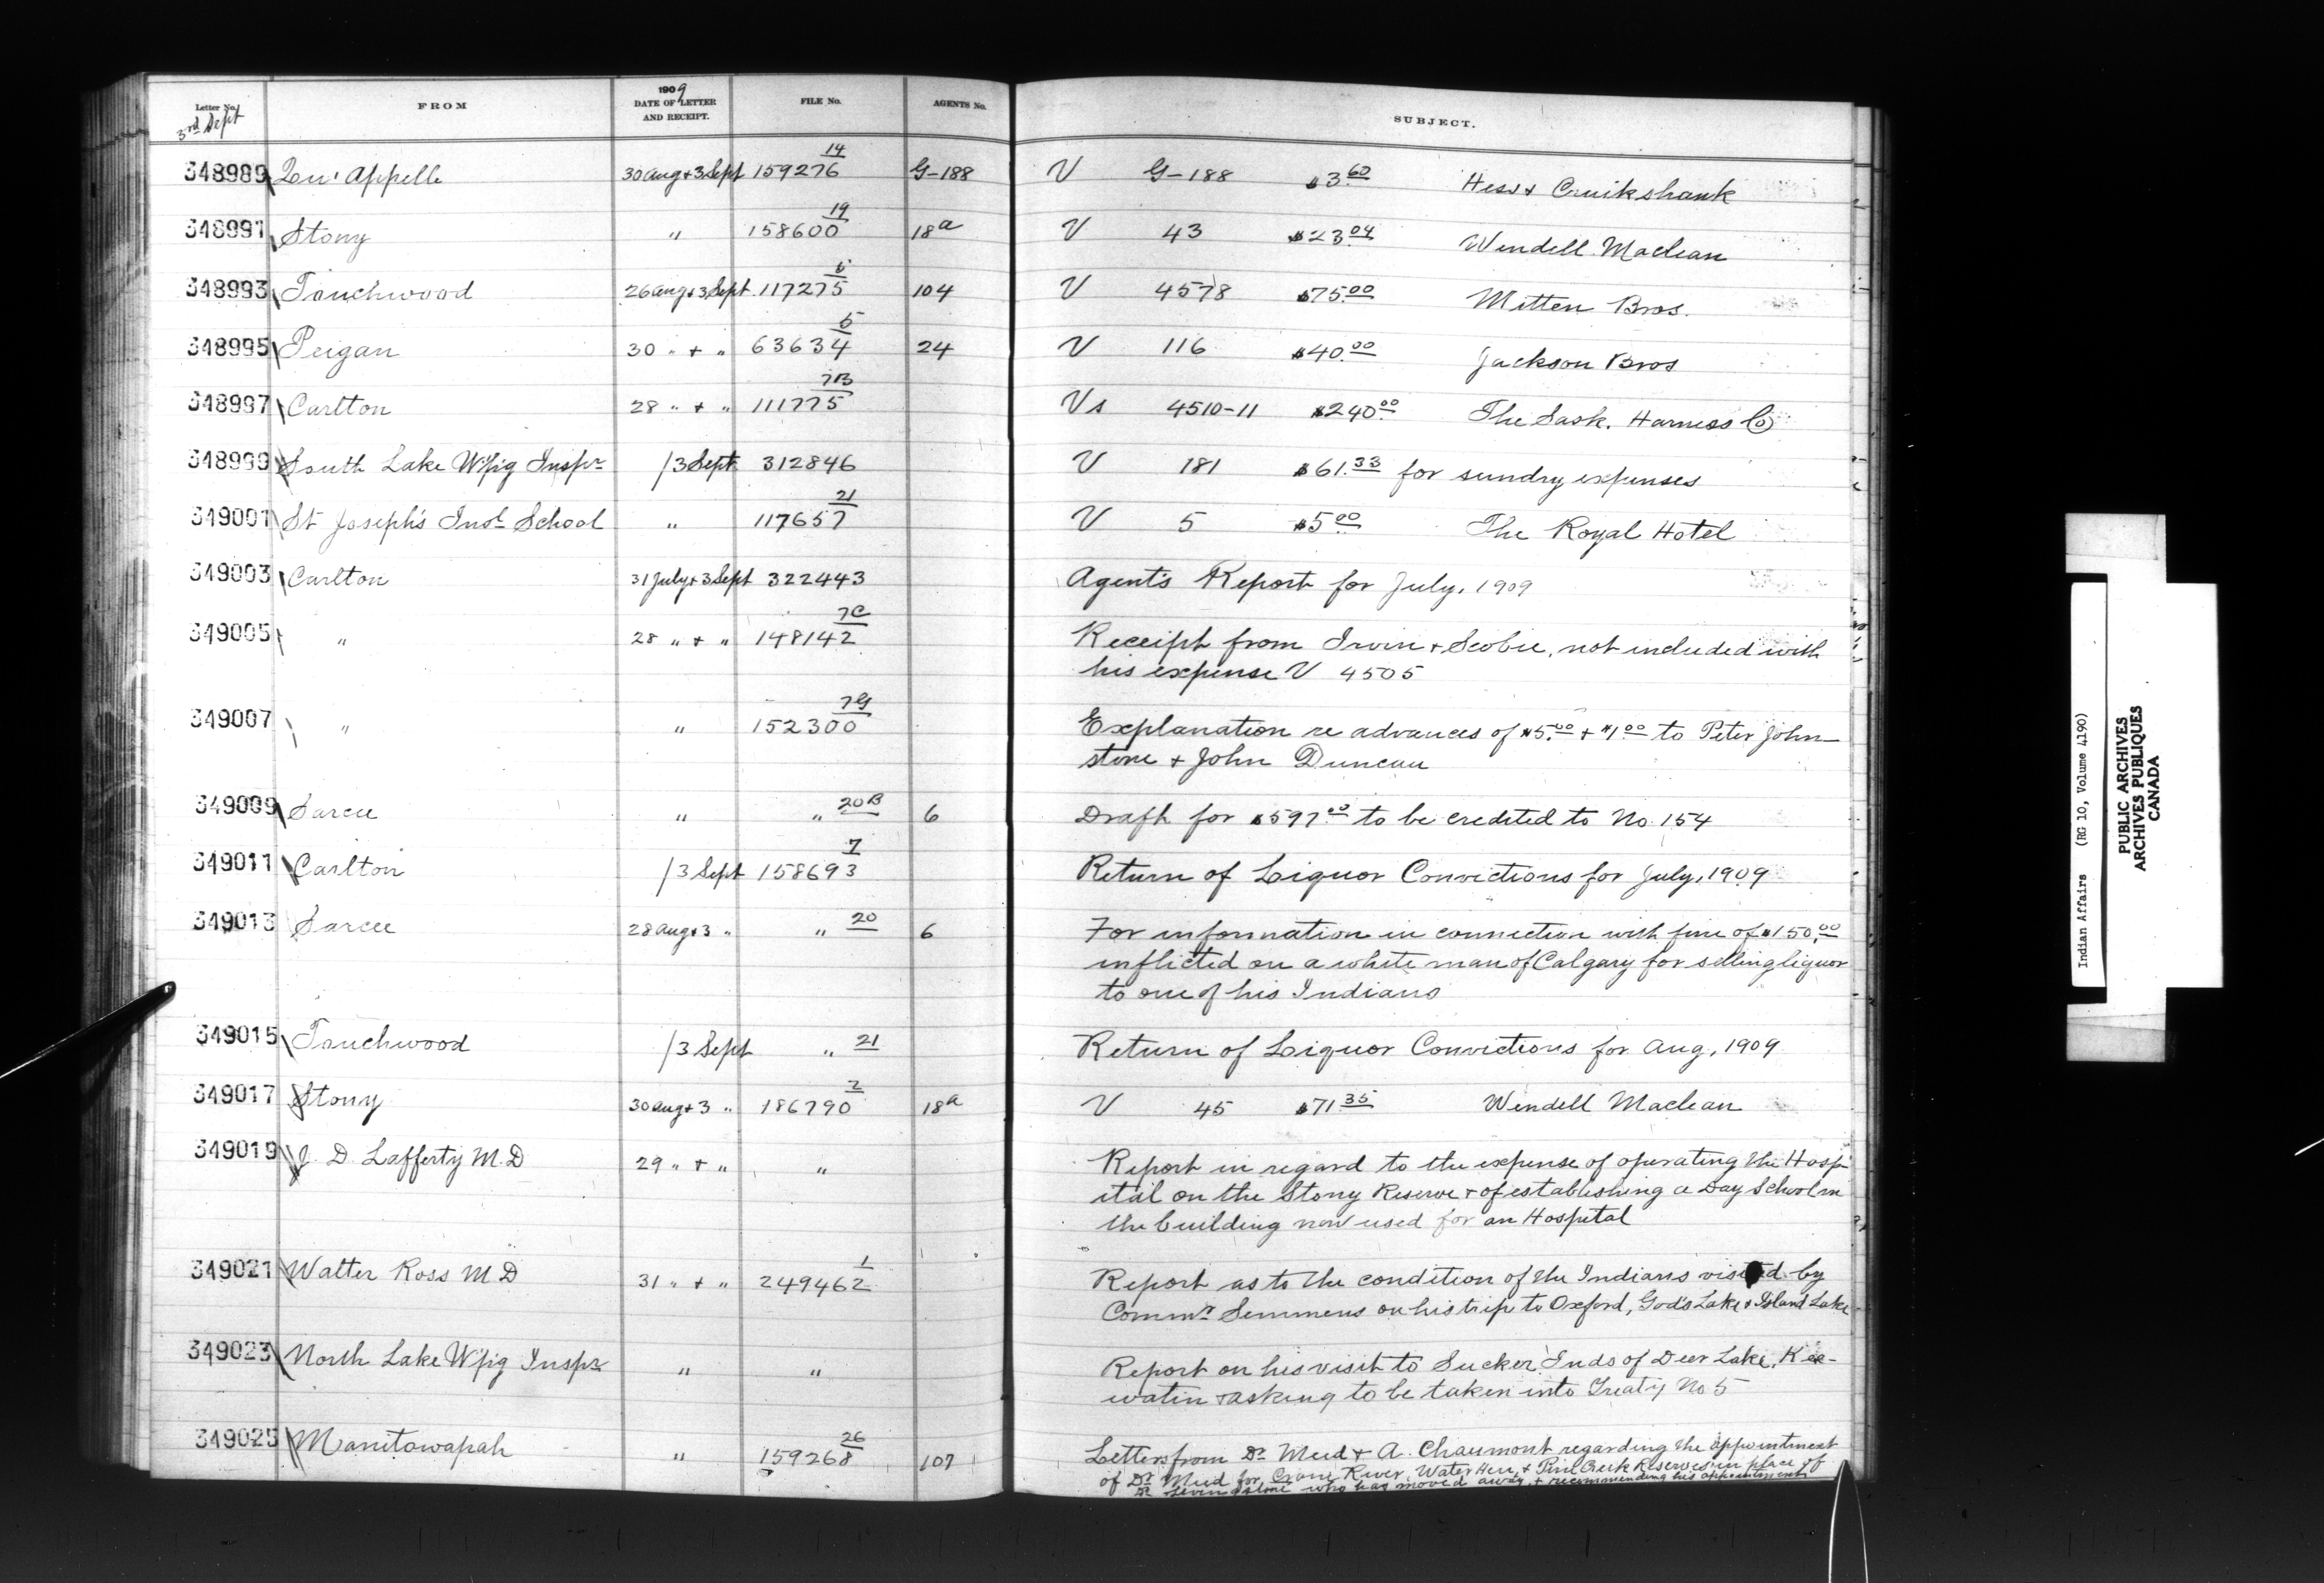 Letter No. FROM 1909 DATE OF LETTER AND RECEIPT. FILE No. AGENTS No. SUBJECT.
3rd Sept
348989 Qu'Appelle 30 Aug + 3 Sept 159276 14 G-188 V G-188 $3.60 Hess + Cruikshank
348991 Stony " 158600 19 18a V 43 $23.04 Wendell Maclean
348993 Touchwood 26 Aug + 3 Sept 117275 104 V 4578 $75.00 Mitten Bros.
348995 Peigan 30 " + " 63634 5 24 V 116 $40.00 Jackson Bros
348997 Carlton 28 " + " 111775 7B Vs 4510-11 $240.00 The Sask. Harness Co
348999 South Lake W'pig Inspr / 3 Sept 312846 V 181 $61.33 for sundry expenses
349001 St Joseph's Indl School " 117657 21 V 5 $5.00 The Royal Hotel
349003 Carlton 31 July + 3 Sept 322443 Agent's Report for July, 1909
349005 " 28 " + " 148142 7C Receipt from Irvin + Scobie, not included with
his expense V 4505
349007 " " 152300 7G Explanation re advances of $5.00 + $1.00 to Peter John-
stone + John Duncan
349009 Sarcee " " 20B 6 Draft for $597.00 to be credited to No. 154
349011 Carlton / 3 Sept 158693 7 Return of Liquor Convictions for July, 1909
349013 Sarcee 28 Aug + 3 " " 20 6 For information in connection with fine of $150.00
inflicted on a white man of Calgary for selling liquor
to one of his Indians
349015 Touchwood / 3 Sept " 21 Return of Liquor Convictions for Aug, 1909
349017 Stony 30 Aug + 3 " 186790 2 18a V 45 $71.35 Wendell Maclean
349019 J. D. Lafferty M.D 29 " + " " Report in regard to the expense of operating the Hosp-
ital on the Stony Reserve + of establishing a Day School in
the building now used for an Hospital
349021 Walter Ross M D 31 " + " 249462 1 Report as to the condition of the Indians visited by
Commr Semmens on his trip to Oxford, God's Lake + Island Lake
349023 North Lake W'pig Inspr " " Report on his visit to Sucker Inds of Deer Lake, Kee-
watin + asking to be taken into Treaty No 5
349025 Manitowapah " 159268 26 107 Letters from Dr Meed + A. Chaumont regarding the appointment
of Dr Meed for Crane River, Water Hen, + Pine Creek Reserves in place of
Dr Livingstone who has moved away, + recommending his appointment
Indian Affairs (RG 10, Volume 4190)
PUBLIC ARCHIVES
ARCHIVES PUBLIQUES
CANADA